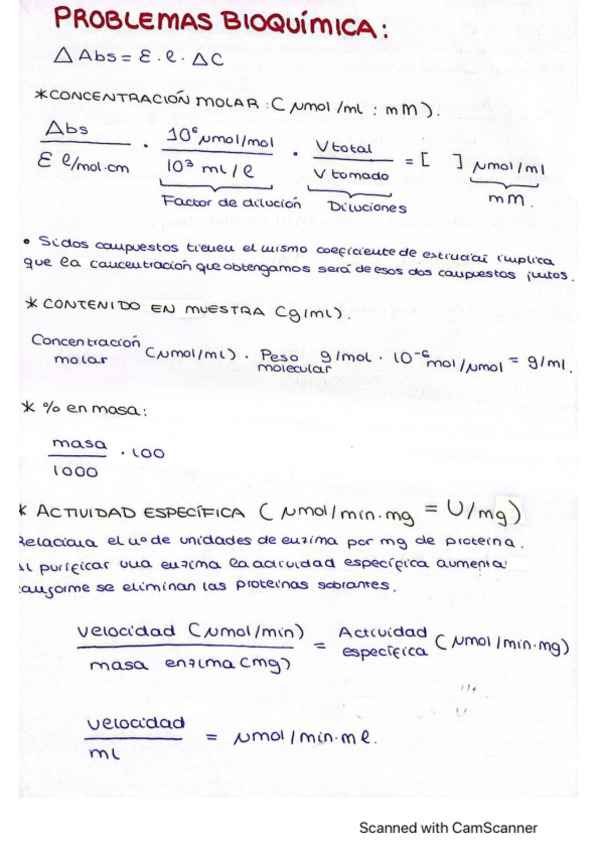 PROBLEMAS BIOQUÍMICA:
△ Abs = ε . l . △C
*CONCENTRACIÓN MOLAR: (μmol/ml : mM).
Abs / ε l/mol.cm . 10⁶ μmol/mol / 10³ ml/l . V total / V tomado = [ ] μmol/ml
Factor de dilución Diluciones mM.
• Si dos compuestos tienen el mismo coeficiente de extinción implica
que la concentración que obtengamos será de esos dos compuestos juntos.
* CONTENIDO EN MUESTRA (g/ml).
Concentración molar (μmol/ml) . Peso molecular g/mol . 10⁻⁶ mol/μmol = g/ml.
* % en masa:
masa / 1000 . 100
* ACTIVIDAD ESPECÍFICA (μmol/min.mg = U/mg)
Relaciona el nº de unidades de enzima por mg de proteína.
Al purificar una enzima la actividad específica aumenta
conforme se eliminan las proteínas sobrantes.
velocidad (μmol/min) / masa enzima (mg) = Actividad específica (μmol/min.mg)
velocidad / ml = μmol/min.ml.
Scanned with CamScanner